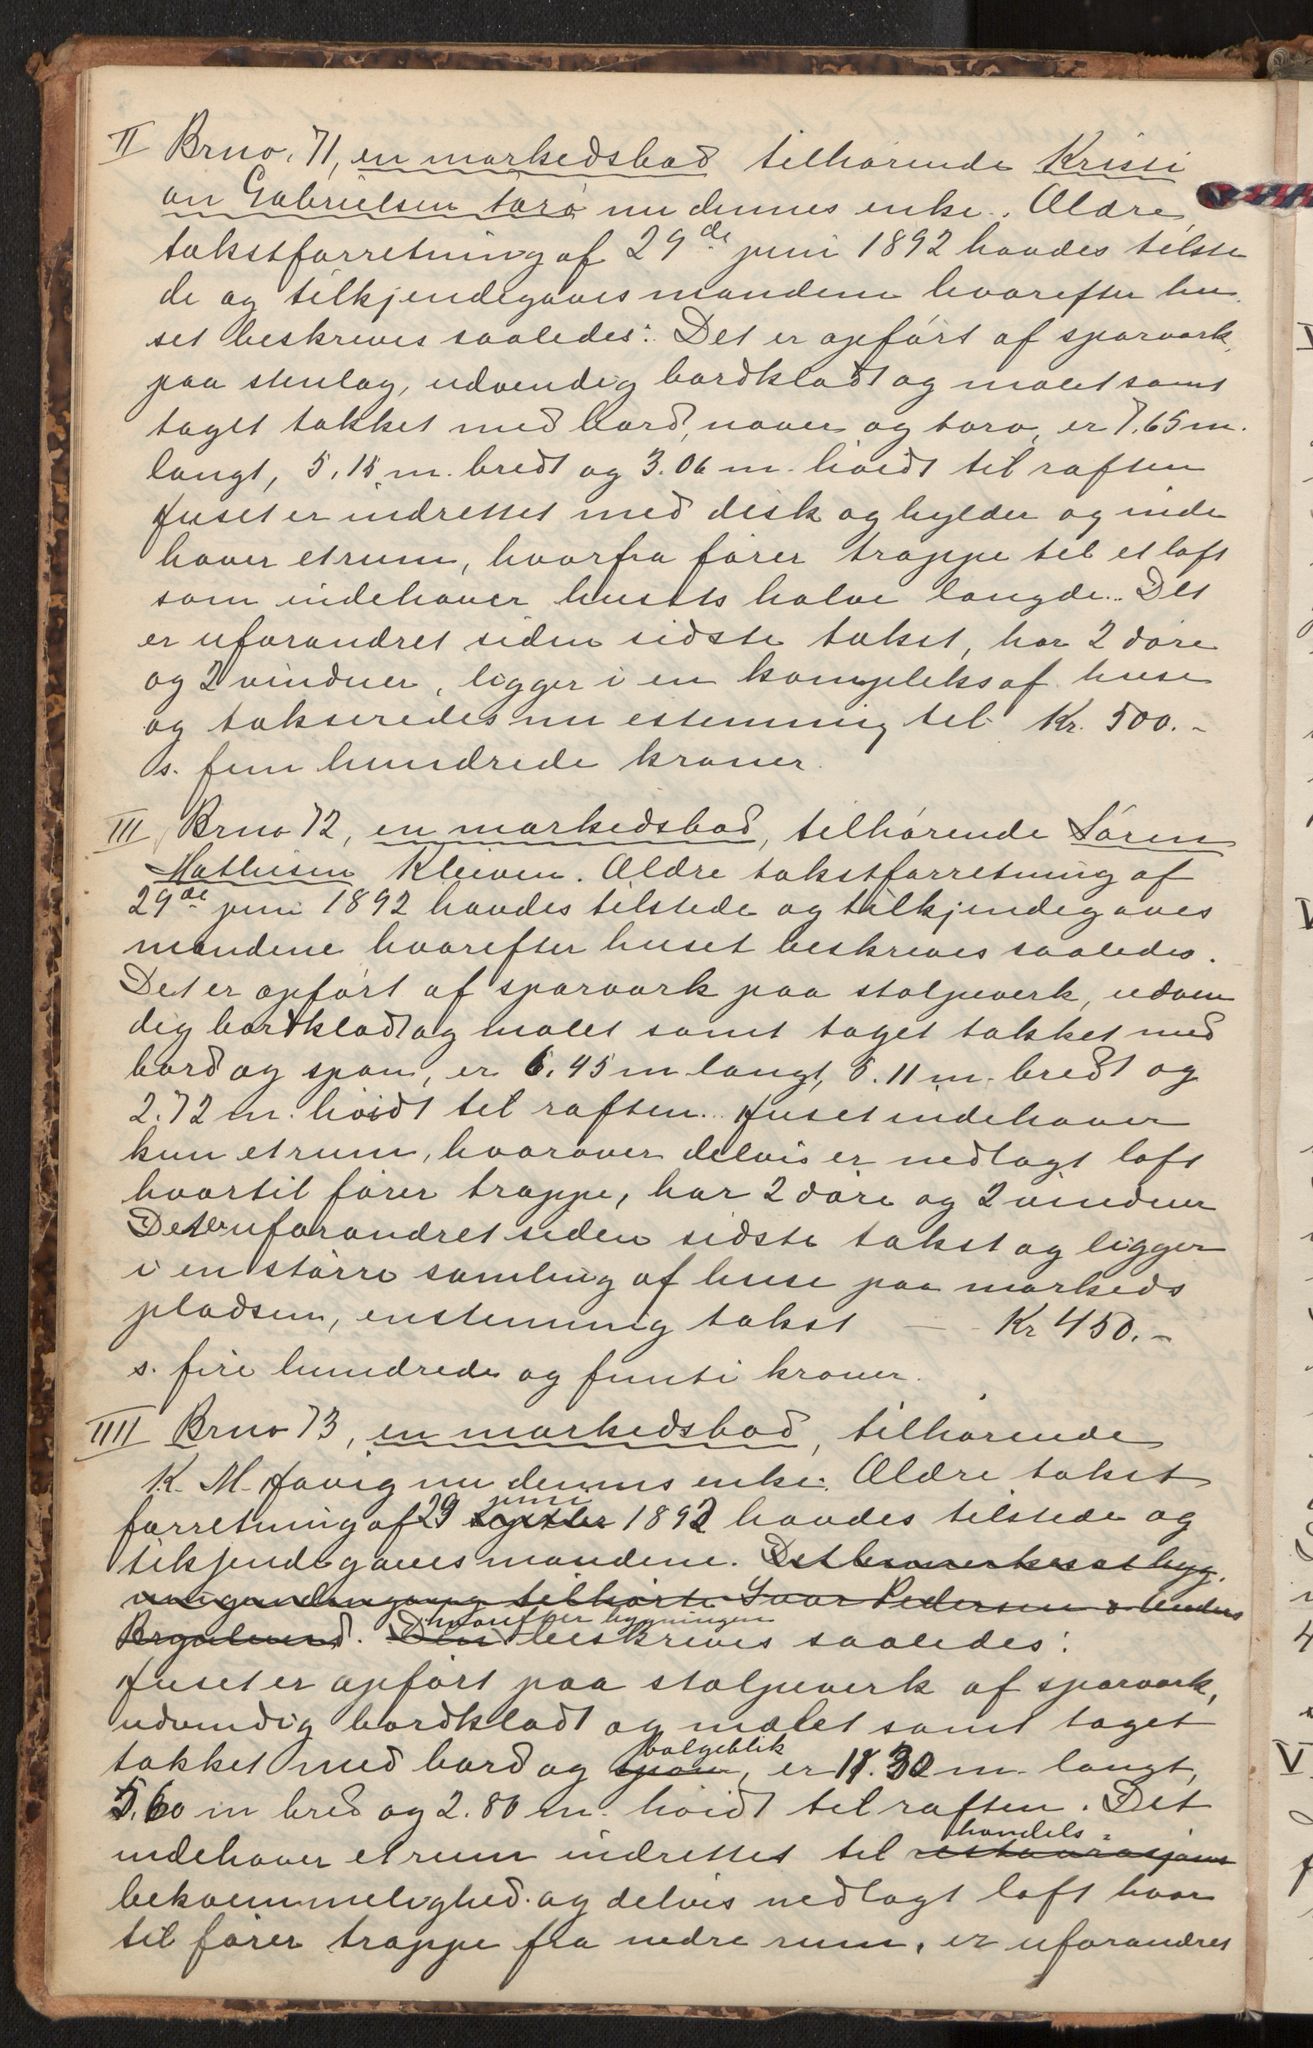 II Brno. 71, en markedsbod tilhørende Kristi
an Gabrielsen Torø nu dennes enke. Ældre
takstforretning af 29de juni 1892 havdes tilste
de og tilkjendegaves mændene hvorefter hu
set beskreves saaledes: Det er opført af sparværk
paa stenlag, udvendig bordklædt og malet samt
taget tækket med bord, næver og torv, er 7.65 m.
langt, 5.15 m. bredt og 3.06 m. høidt til raften
Huset er indrettet med disk og hylder og inde
haver et rum, hvorfra fører trappe til et loft
som indehaver husets halve længde. Det
er uforandret siden sidste takst, har 2 døre
og 2 vinduer, ligger i en kompleks af huse
og takseredes nu estemmig til Kr. 500.-
s. fem hundrede kroner.
III Brno 72, en markedsbod, tilhørende Søren
Mathisen Kleiven. Ældre takstforretning af
29de juni 1892 havdes tilstede og tilkjendegaves
mændene hvorefter huset beskreves saaledes.
Det er opført af sparværk paa stolpeverk, udven
dig bordklædt og malet samt taget tækket med
bord og spon, er 6.45 m langt, 5.11 m. bredt og
2.72 m. høidt til raften. Huset indehaver
kun et rum, hvorover delvis er nedlagt loft
hvortil fører trappe, har 2 døre og 2 vinduer
Det er uforandret siden sidste takst og ligger
i en større samling af huse paa markeds
pladsen, enstemmig takst — Kr 450.-
s. fire hundrede og femti kroner.
IIII Brno 73, en markedsbod, tilhørende
K. M. Høvig nu dennes enke. Ældre takst
forretning af 29 juni 1892 havdes tilstede og
tilkjendegaves mændene. Det bemærkes at byg
ningen engang tilhørte Ivar Pedersen & Anders
hvorefter bygningen beskreves saaledes:
Huset er opført paa stolpeverk af sparværk,
udvendig bordklædt og malet samt taget
tækket med bord og spon bølgeblik, er 11.30 m. langt,
5.60 m bred og 2.80 m. høidt til raften. Det
indehaver et rum indrettet til restaurasjons handels-
bekvemmelighed og delvis nedlagt loft hvor
til fører trappe fra nedre rum, er uforandret